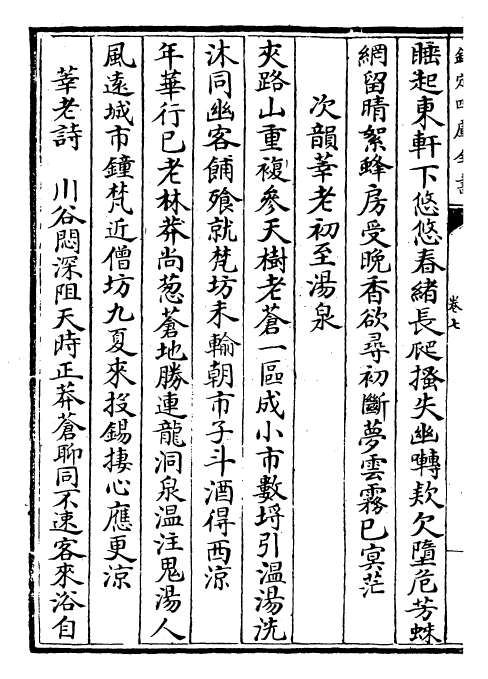 欽定四庫全書
卷七
睡起東軒下悠悠春緒長爬搔失幽囀欵欠墮危芳蛛
網留晴絮蜂房受晚香欲尋初斷夢雲霧已冥茫
次韻莘老初至湯泉
夾路山重複參天樹老蒼一區成小市數埒引溫湯洗
沐同幽客餔飱就梵坊未輸朝市子斗酒得西涼
年華行已老林莽尚葱蒼地勝連龍洞泉溫注鬼湯人
風遠城市鐘梵近僧坊九夏來投錫捿心應更涼
莘老詩 川谷悶深阻天時正莽蒼聊同不速客來浴自